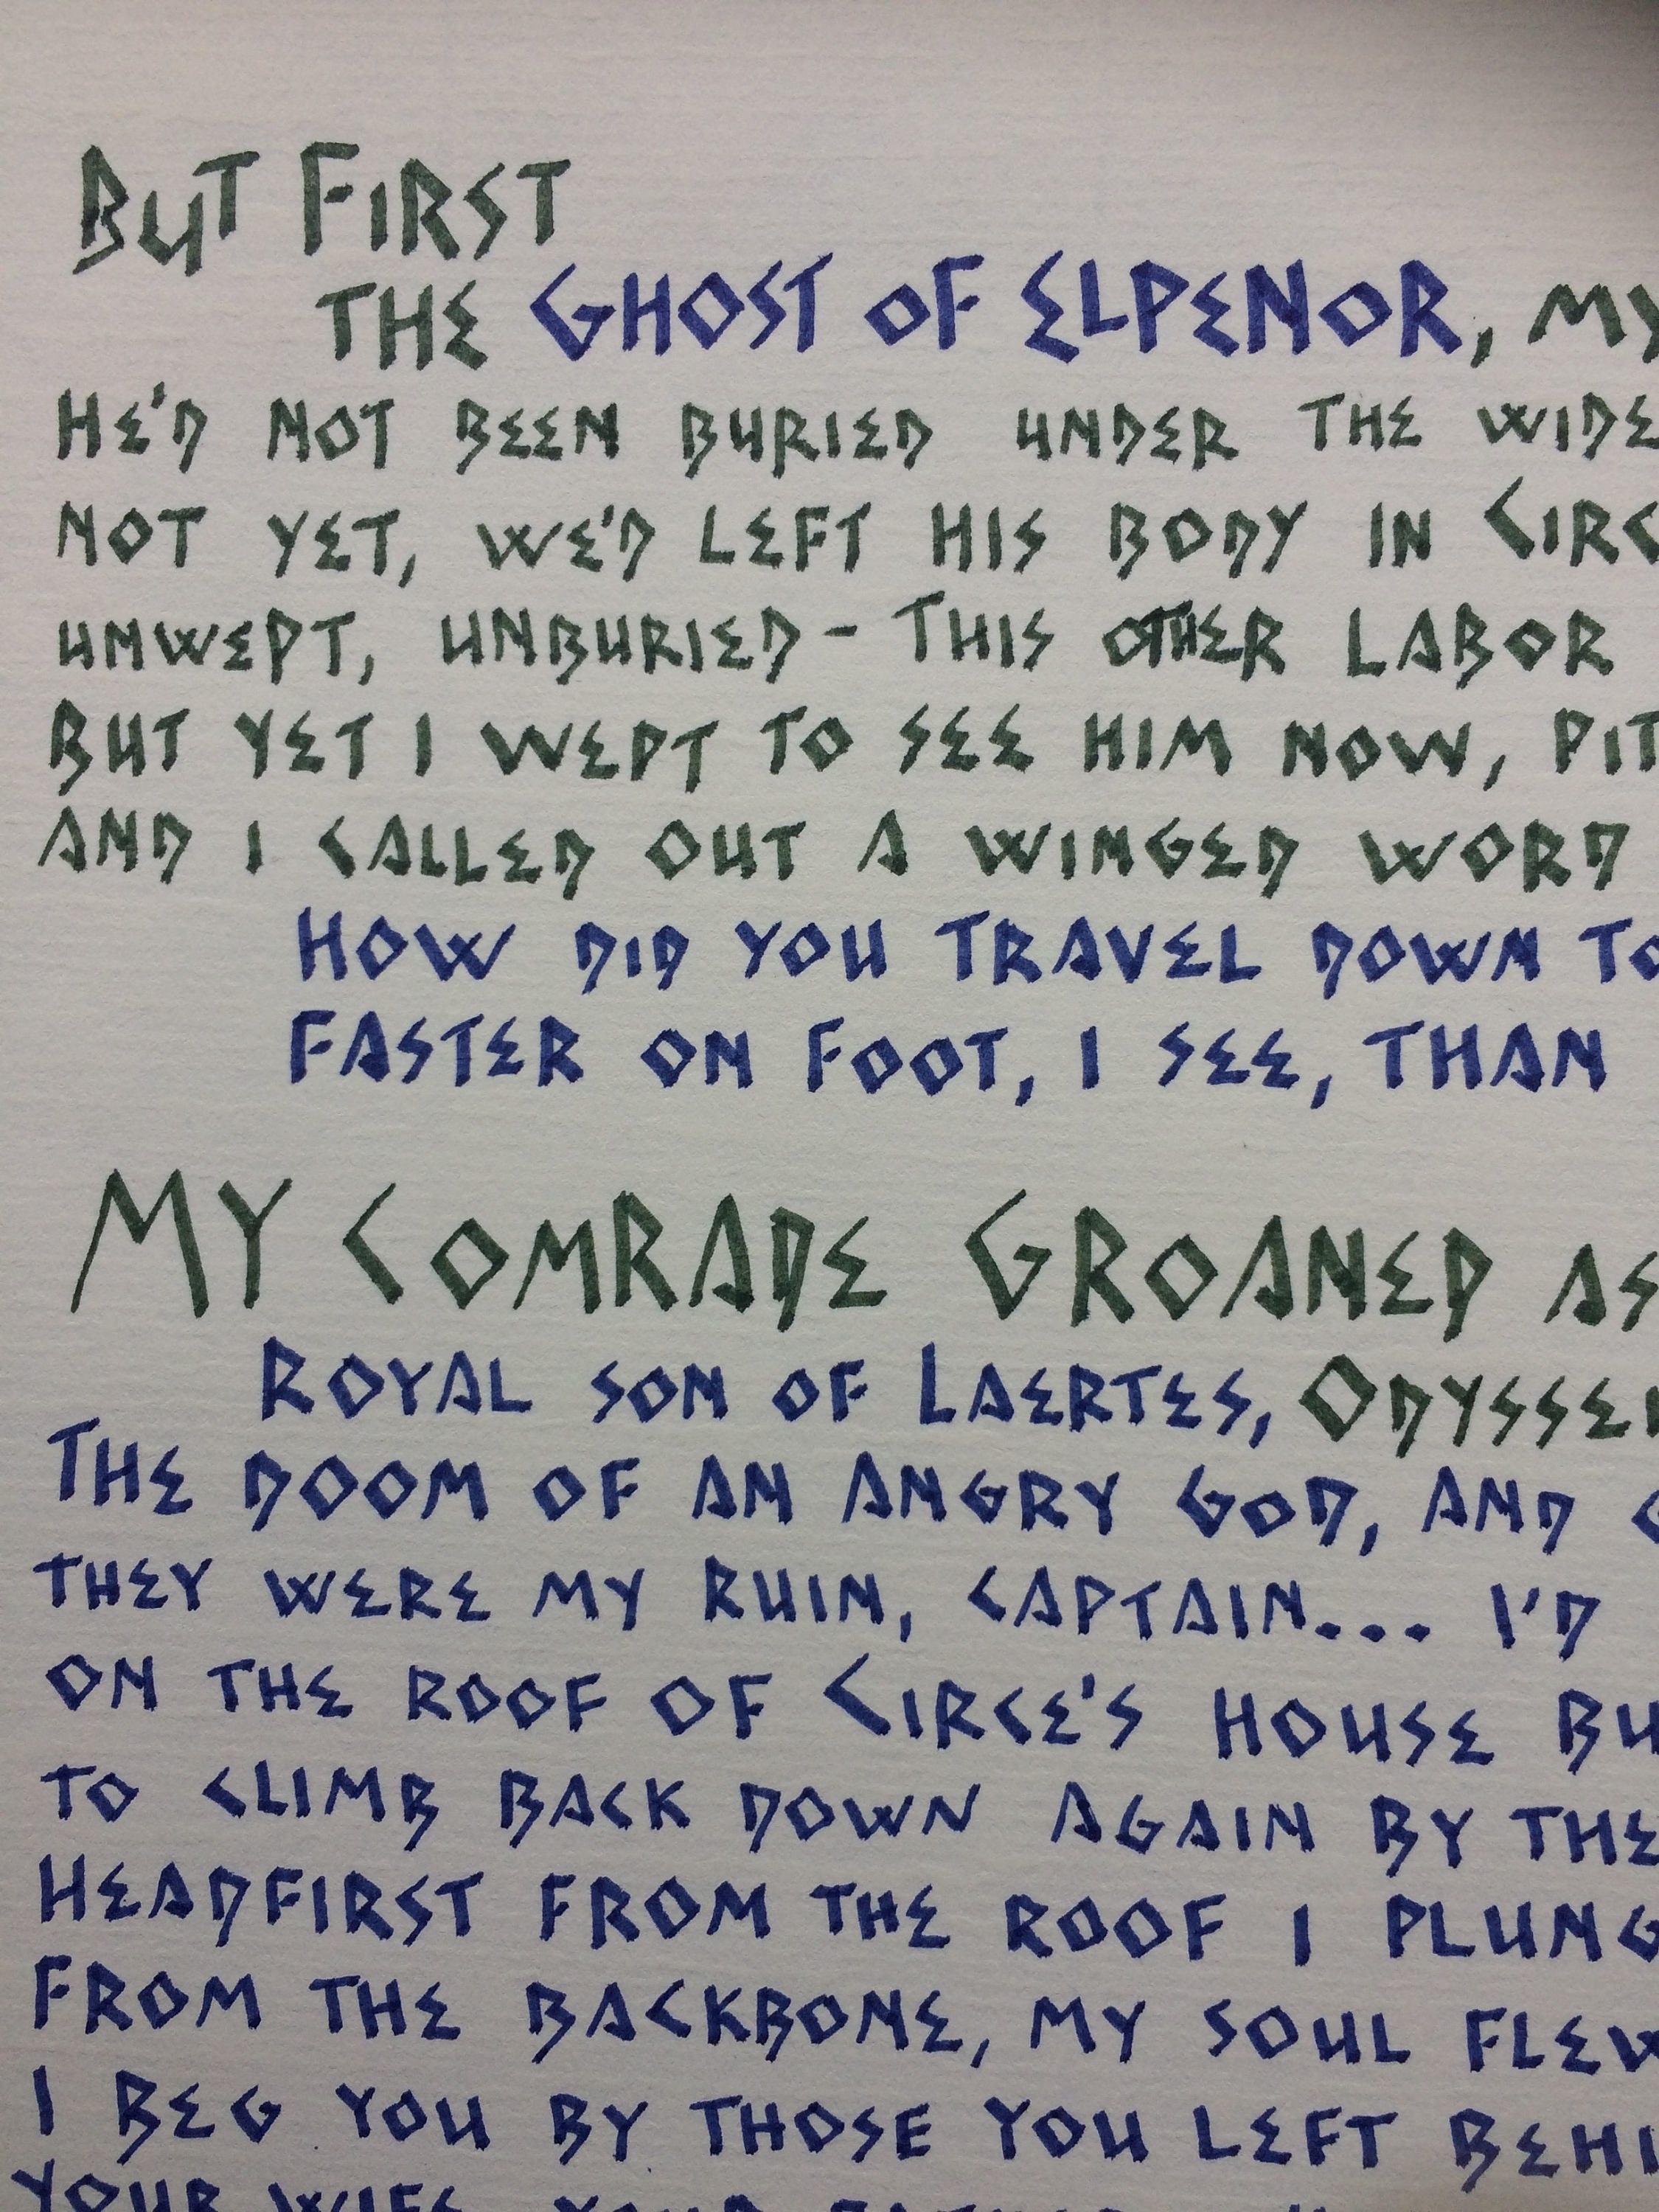 BUT FIRST
THE GHOST OF ELPENOR, MY
HE'D NOT BEEN BURIED UNDER THE WIDE
NOT YET, WE'D LEFT HIS BODY IN CIRC
UNWEPT, UNBURIED - THIS OTHER LABOR
BUT YET I WEPT TO SEE HIM NOW, PIT
AND I CALLED OUT A WINGED WORD
HOW DID YOU TRAVEL DOWN TO
FASTER ON FOOT, I SEE, THAN
MY COMRADE GROANED AS
ROYAL SON OF LAERTES, ODYSSEU
THE DOOM OF AN ANGRY GOD, AND
THEY WERE MY RUIN, CAPTAIN... I'D
ON THE ROOF OF CIRCE'S HOUSE BU
TO CLIMB BACK DOWN AGAIN BY THE
HEADFIRST FROM THE ROOF I PLUNG
FROM THE BACKBONE, MY SOUL FLEW
I BEG YOU BY THOSE YOU LEFT BEHI
YOUR WIFE, YOUR